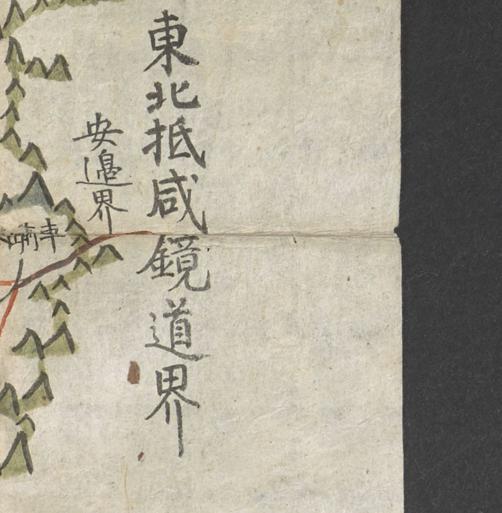 東北抵咸鏡道界
安邊界